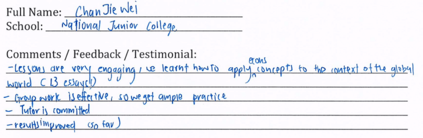 Full Name: Chan Jie Wei
School: National Junior College
Comments / Feedback / Testimonial:
- Lessons are very engaging, we learnt how to apply econs concepts to the context of the global
world (L3 essays!)
- Group work is effective, so we get ample practice
- Tutor is committed
- results improved (so far)